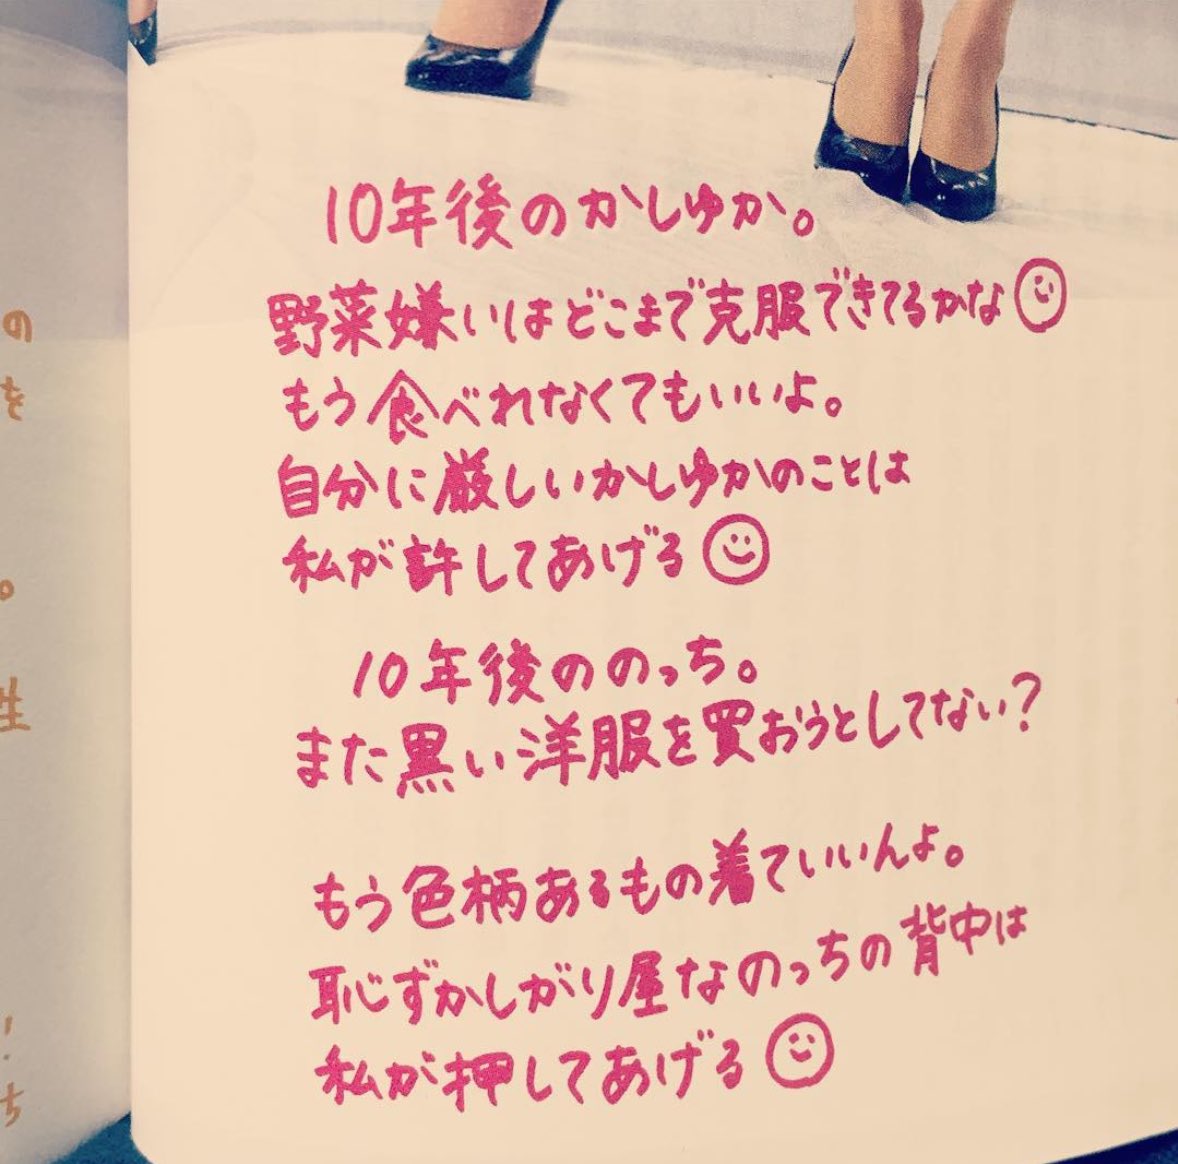 10年後のかしゆか。
野菜嫌いはどこまで克服できてるかな
もう食べれなくてもいいよ。
自分に厳しいかしゆかのことは
私が許してあげる
10年後ののっち。
また黒い洋服を買おうとしてない?
もう色柄あるもの着ていいんよ。
恥ずかしがり屋なのっちの背中は
私が押してあげる
の
を
。
性
!
ち